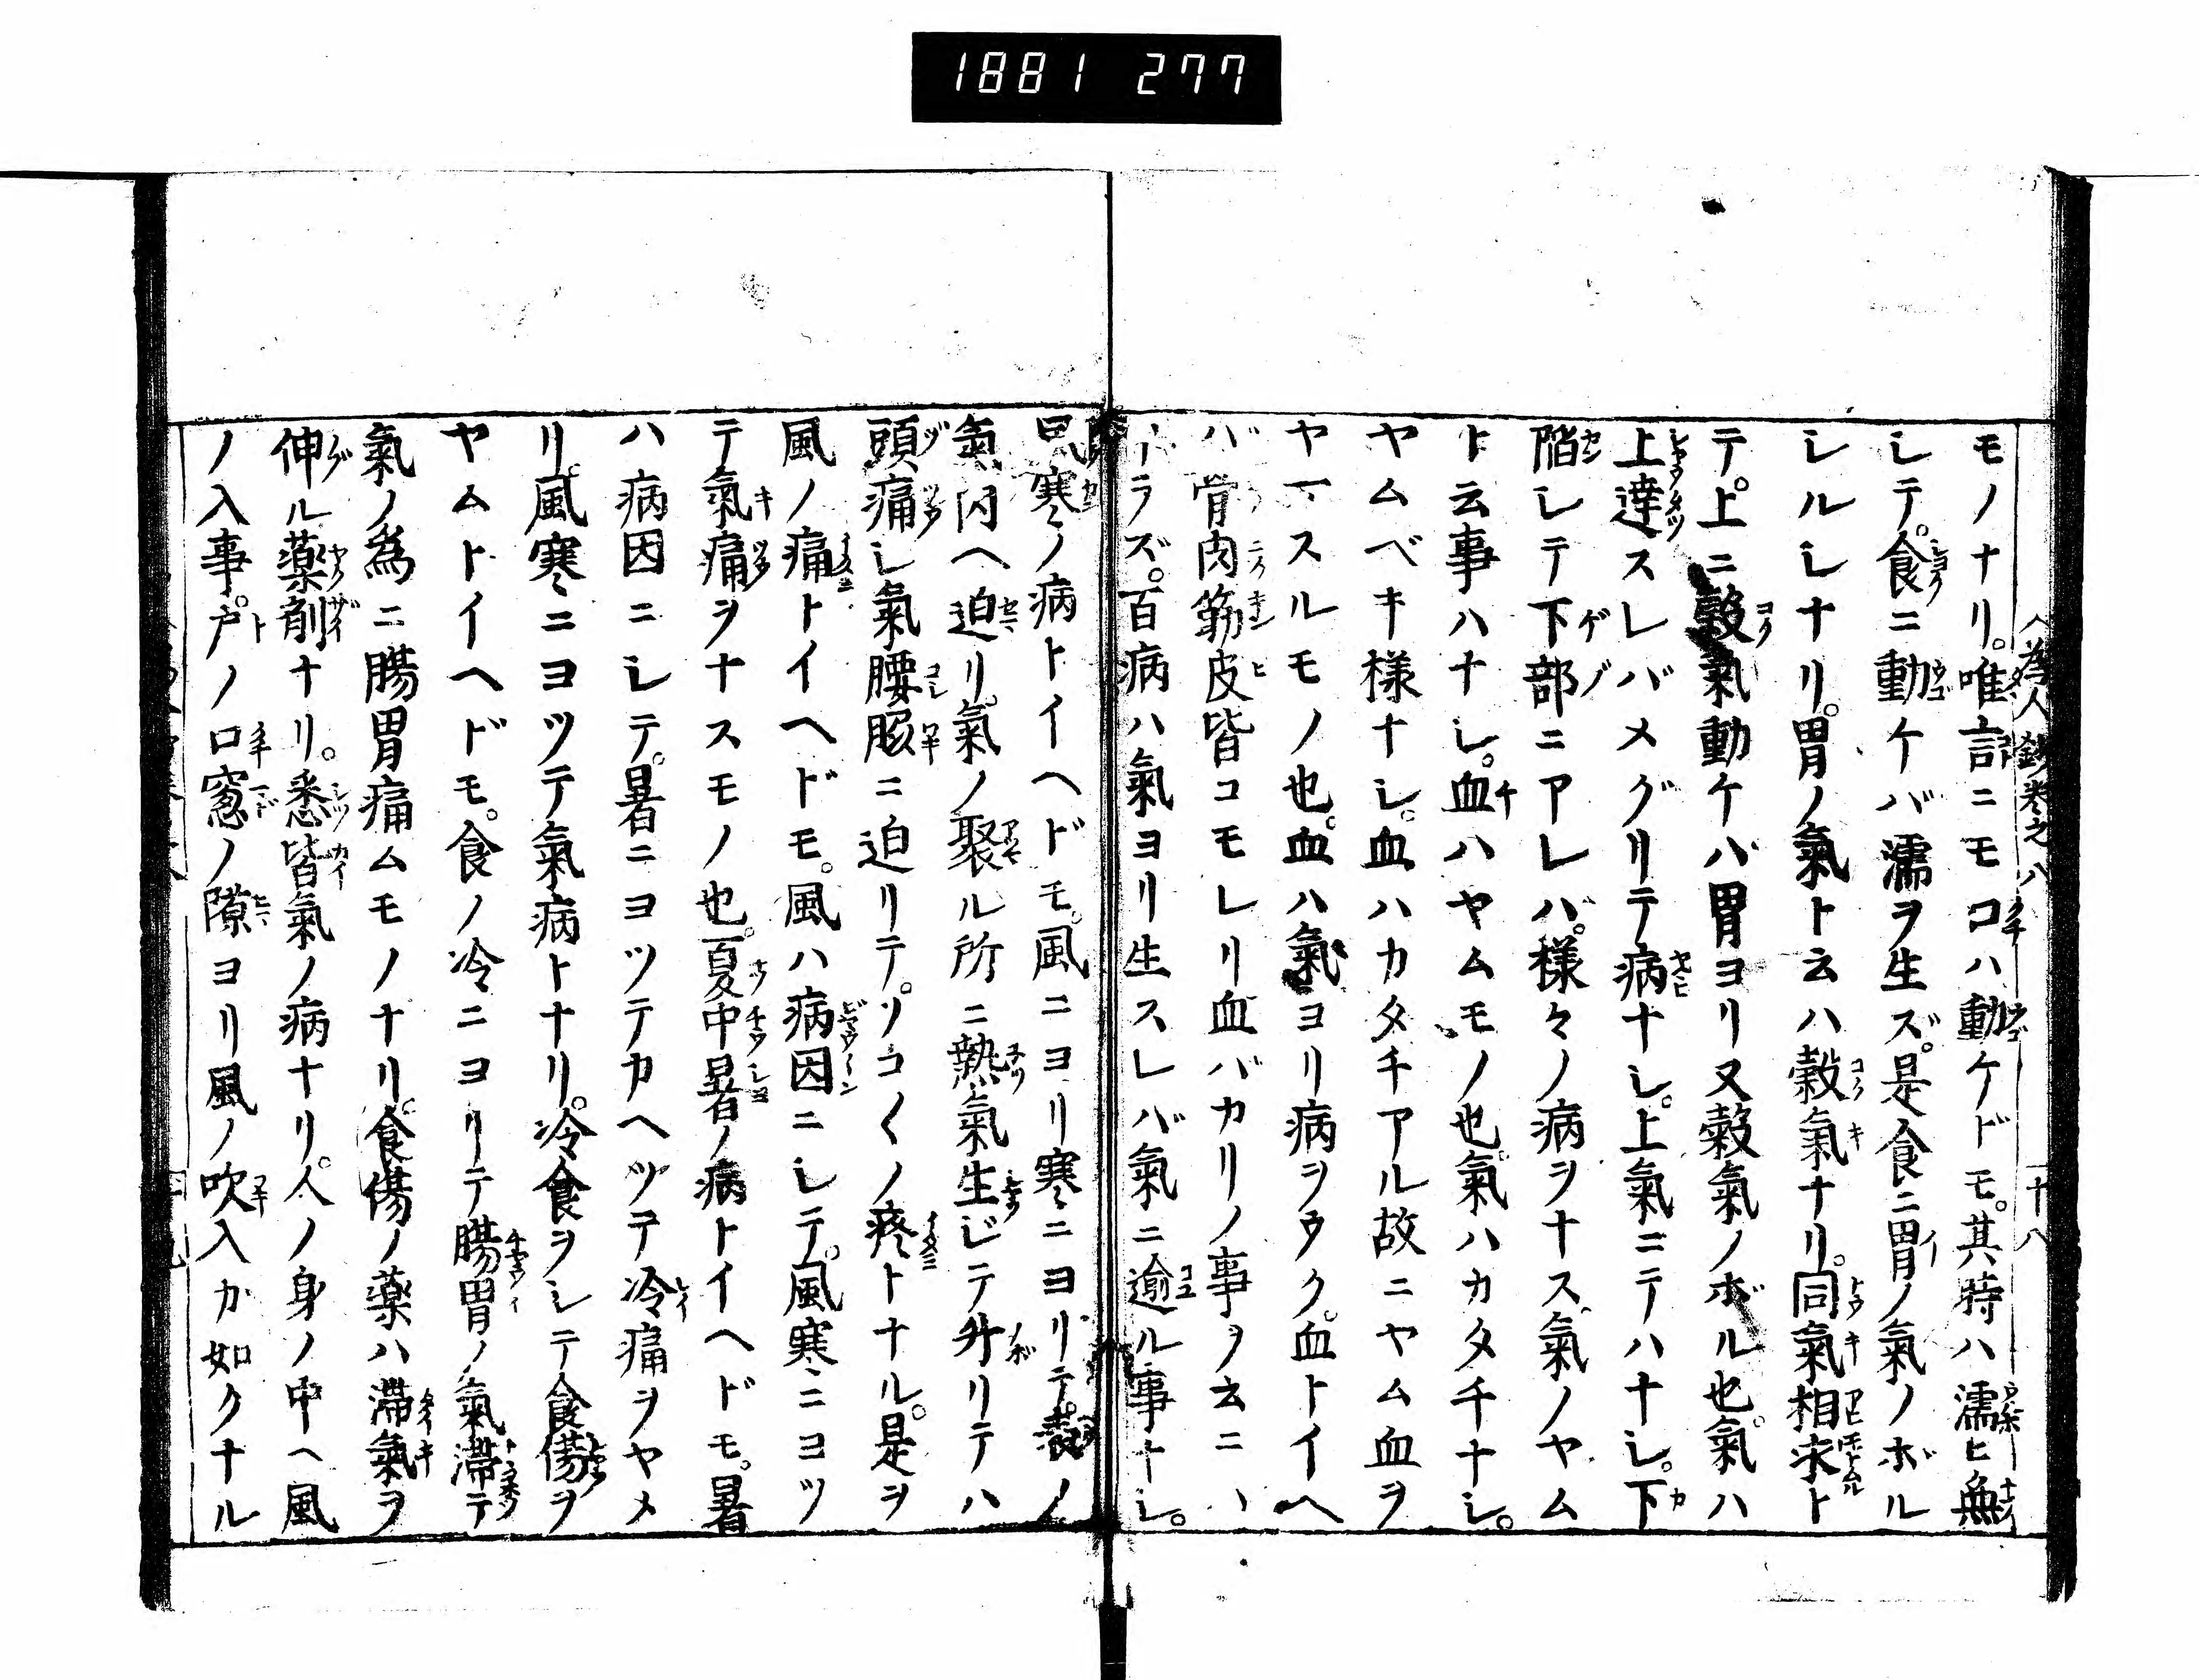 1881 277
為人鈔巻之八 十八
モノナリ。唯言ニモコハ動ケドモ。其時ハ濡ヒ無
シテ。食ニ動ケバ濡ヲ生ズ。是食ニ胃ノ氣ノボル
シルシナリ。胃ノ氣ト云ハ穀氣ナリ。同氣相求ト
テ。上ニ穀氣動ケハ胃ヨリ又穀氣ノボル也。氣ハ
上達スレバメグリテ病ナシ。上氣ニテハナシ。下
陷シテ下部ニアレハ。様々ノ病ヲナス。氣ノヤム
ト云事ハナシ。血ハヤムモノ也。氣ハカタチナシ。
ヤムベキ様ナシ。血ハカタチアル故ニヤム血ヲ
ヤマスルモノ也。血ハ氣ヨリ病ヲウク。血トイヘ
バ骨肉筋皮皆コモレリ血バカリノ事ヲ云ニハ
アラズ。百病ハ氣ヨリ生スレバ氣ニ逾ル事ナシ。
風寒ノ病トイヘドモ。風ニヨリ寒ニヨリテ。穀ノ
氣内ヘ迫リ。氣ノ聚ル所ニ熱氣生ジテ升リテハ
頭痛シ氣腰脇ニ迫リテ。ソコ〱ノ疼トナル。是ヲ
風ノ痛トイヘドモ。風ハ病因ニシテ。風寒ニヨツ
テ氣痛ヲナスモノ也。夏中暑ノ病トイヘドモ。暑
ハ病因ニシテ。暑ニヨツテカヘツテ冷痛ヲヤメ
リ。風寒ニヨツテ氣病トナリ。冷食ヲシテ食傷ヲ
ヤムトイヘドモ。食ノ冷ニヨリテ腸胃ノ氣滞テ
氣ノ為ニ腸胃痛ムモノナリ。食傷ノ薬ハ滞氣ヲ
伸ル薬剤ナリ。悉皆氣ノ病ナリ。人ノ身ノ中ヘ風
ノ入事。戸ノ口窓ノ隙ヨリ風ノ吹入カ如クナル